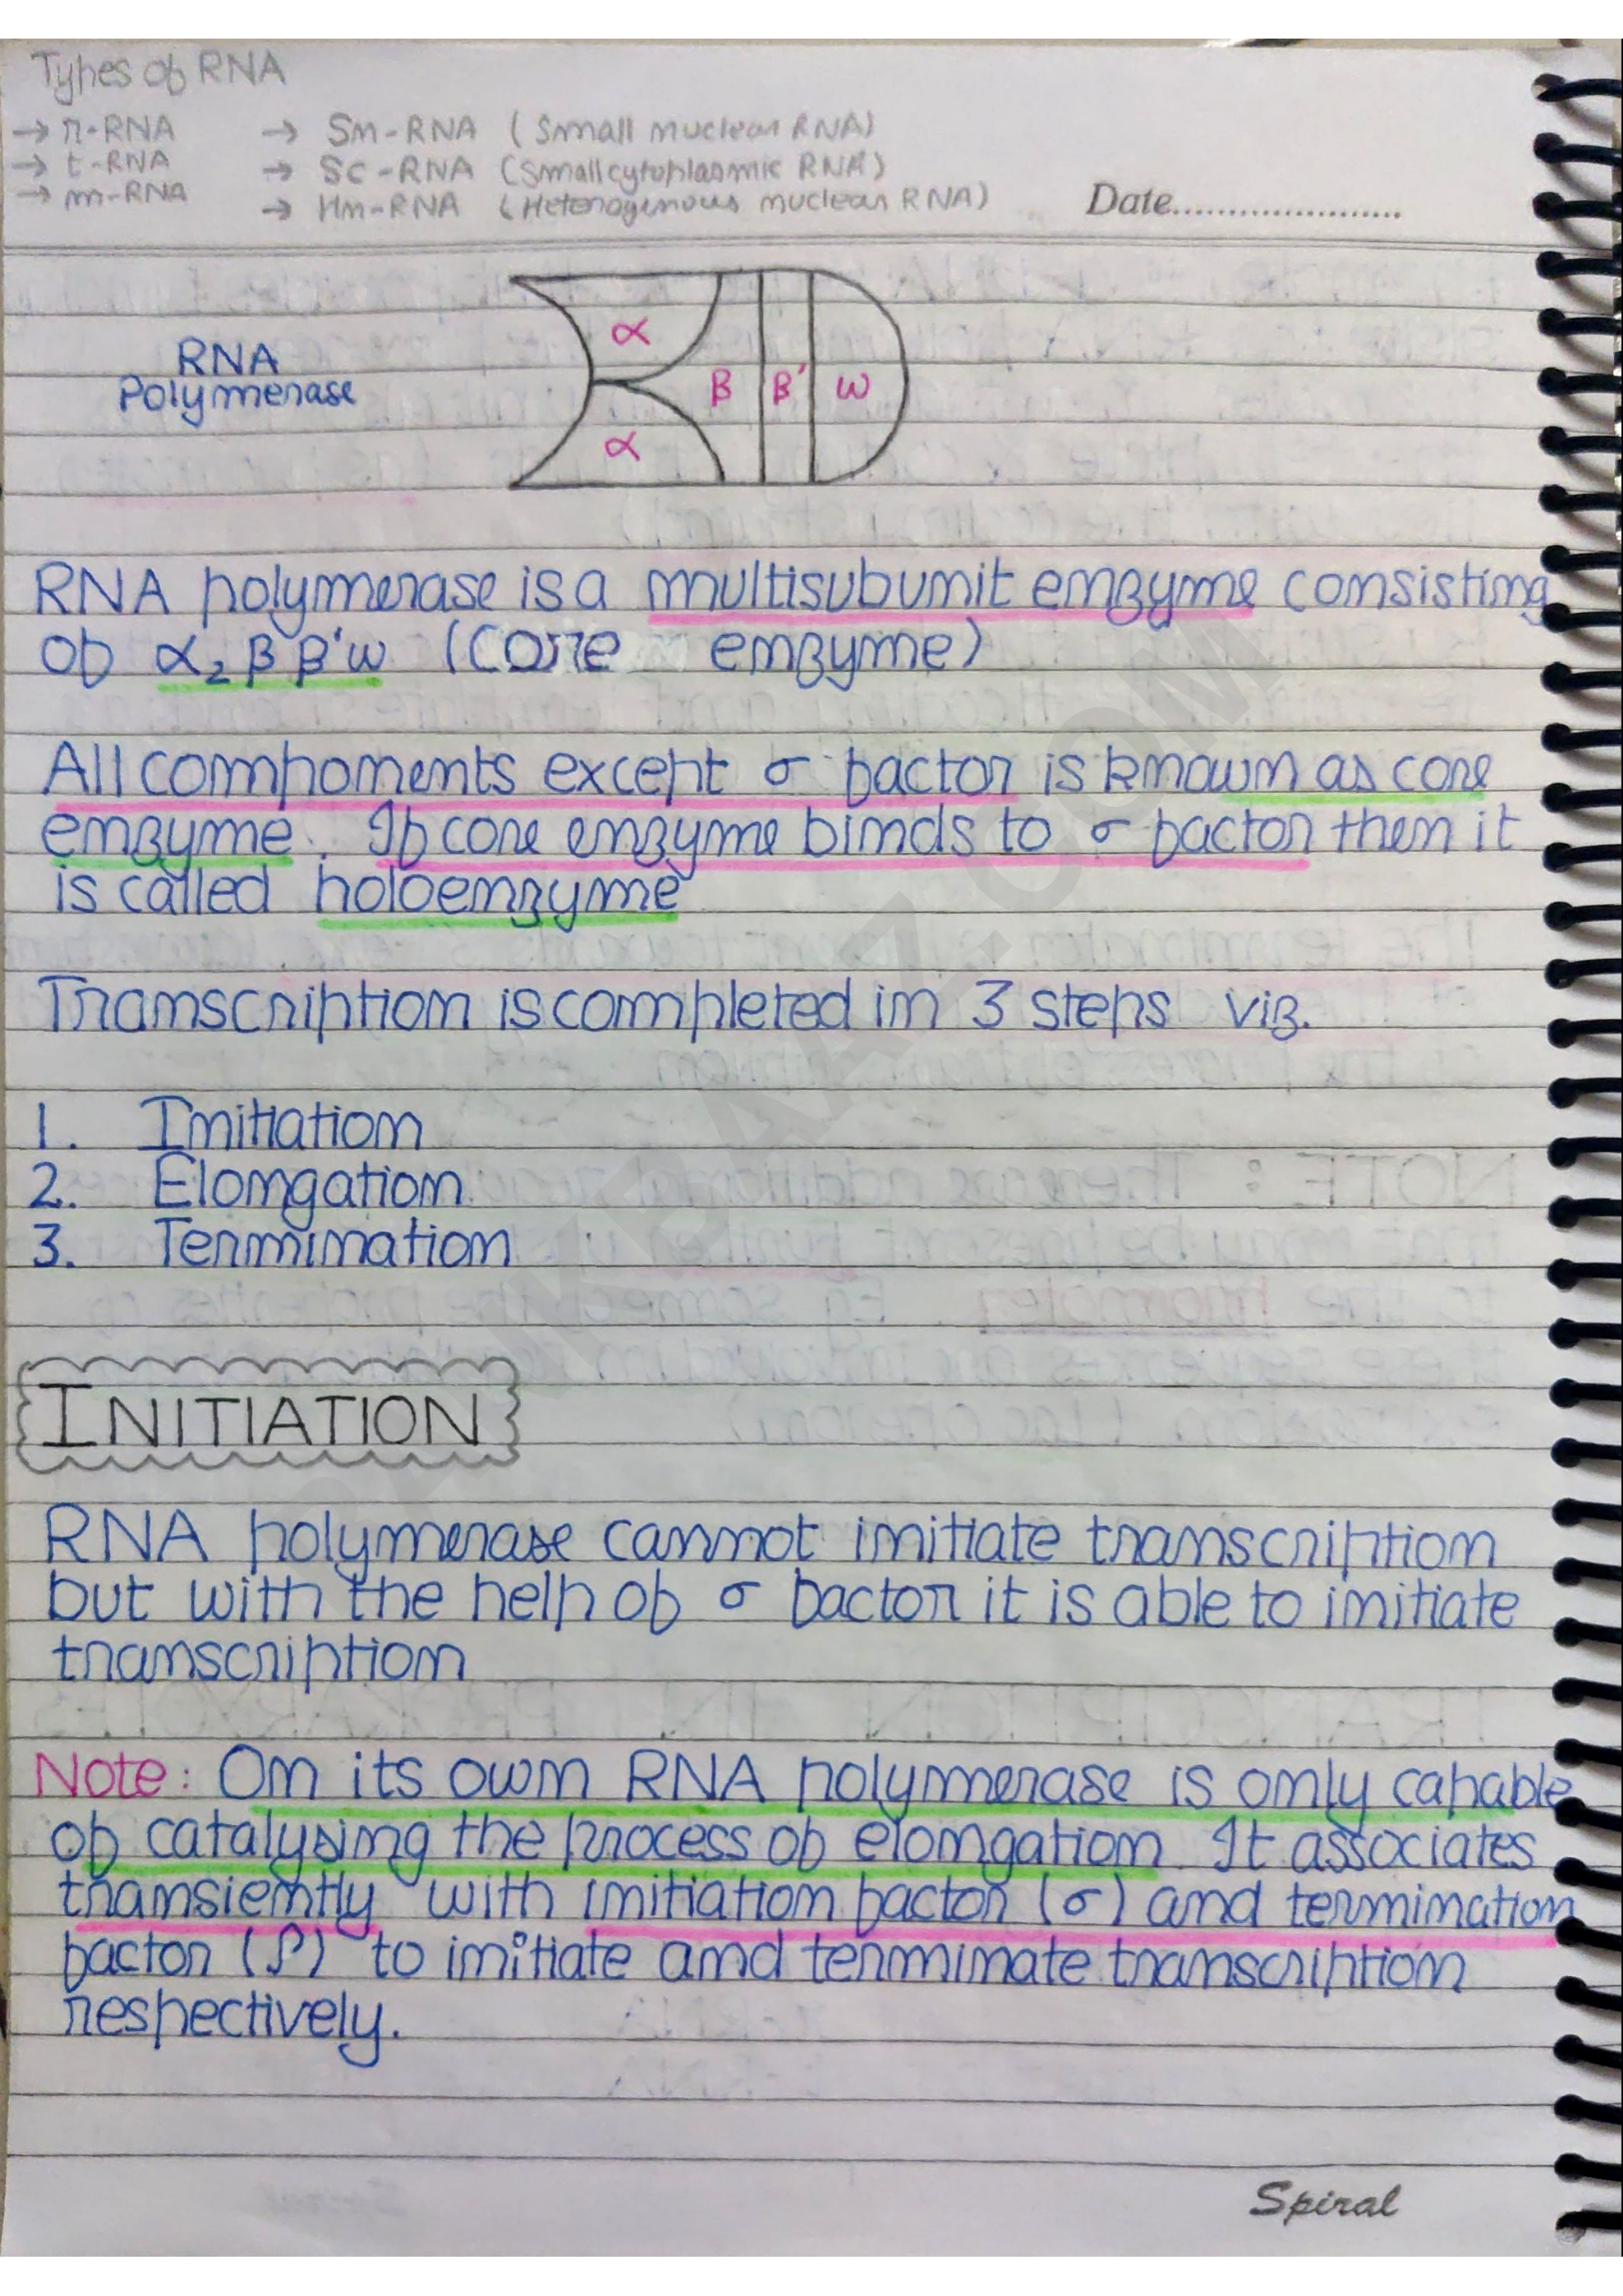 Types of RNA
→ r-RNA → Sn-RNA (Small nuclear RNA)
→ t-RNA → Sc-RNA (Small cytoplasmic RNA)
→ m-RNA → Hn-RNA (Heterogenous nuclear RNA)
Date......................
RNA
Polymerase
α
β β' ω
α
RNA polymerase is a multisubunit enzyme consisting
of α₂ β β' ω (Core enzyme)
All components except σ factor is known as core
enzyme. If core enzyme binds to σ factor then it
is called holoenzyme
Transcription is completed in 3 steps viz.
1. Initiation
2. Elongation
3. Termination
INITIATION
RNA polymerase cannot initiate transcription
but with the help of σ factor it is able to initiate
transcription
Note: On its own RNA polymerase is only capable
of catalysing the process of elongation. It associates
transiently with initiation factor (σ) and termination
factor (ρ) to initiate and terminate transcription
respectively.
Spiral